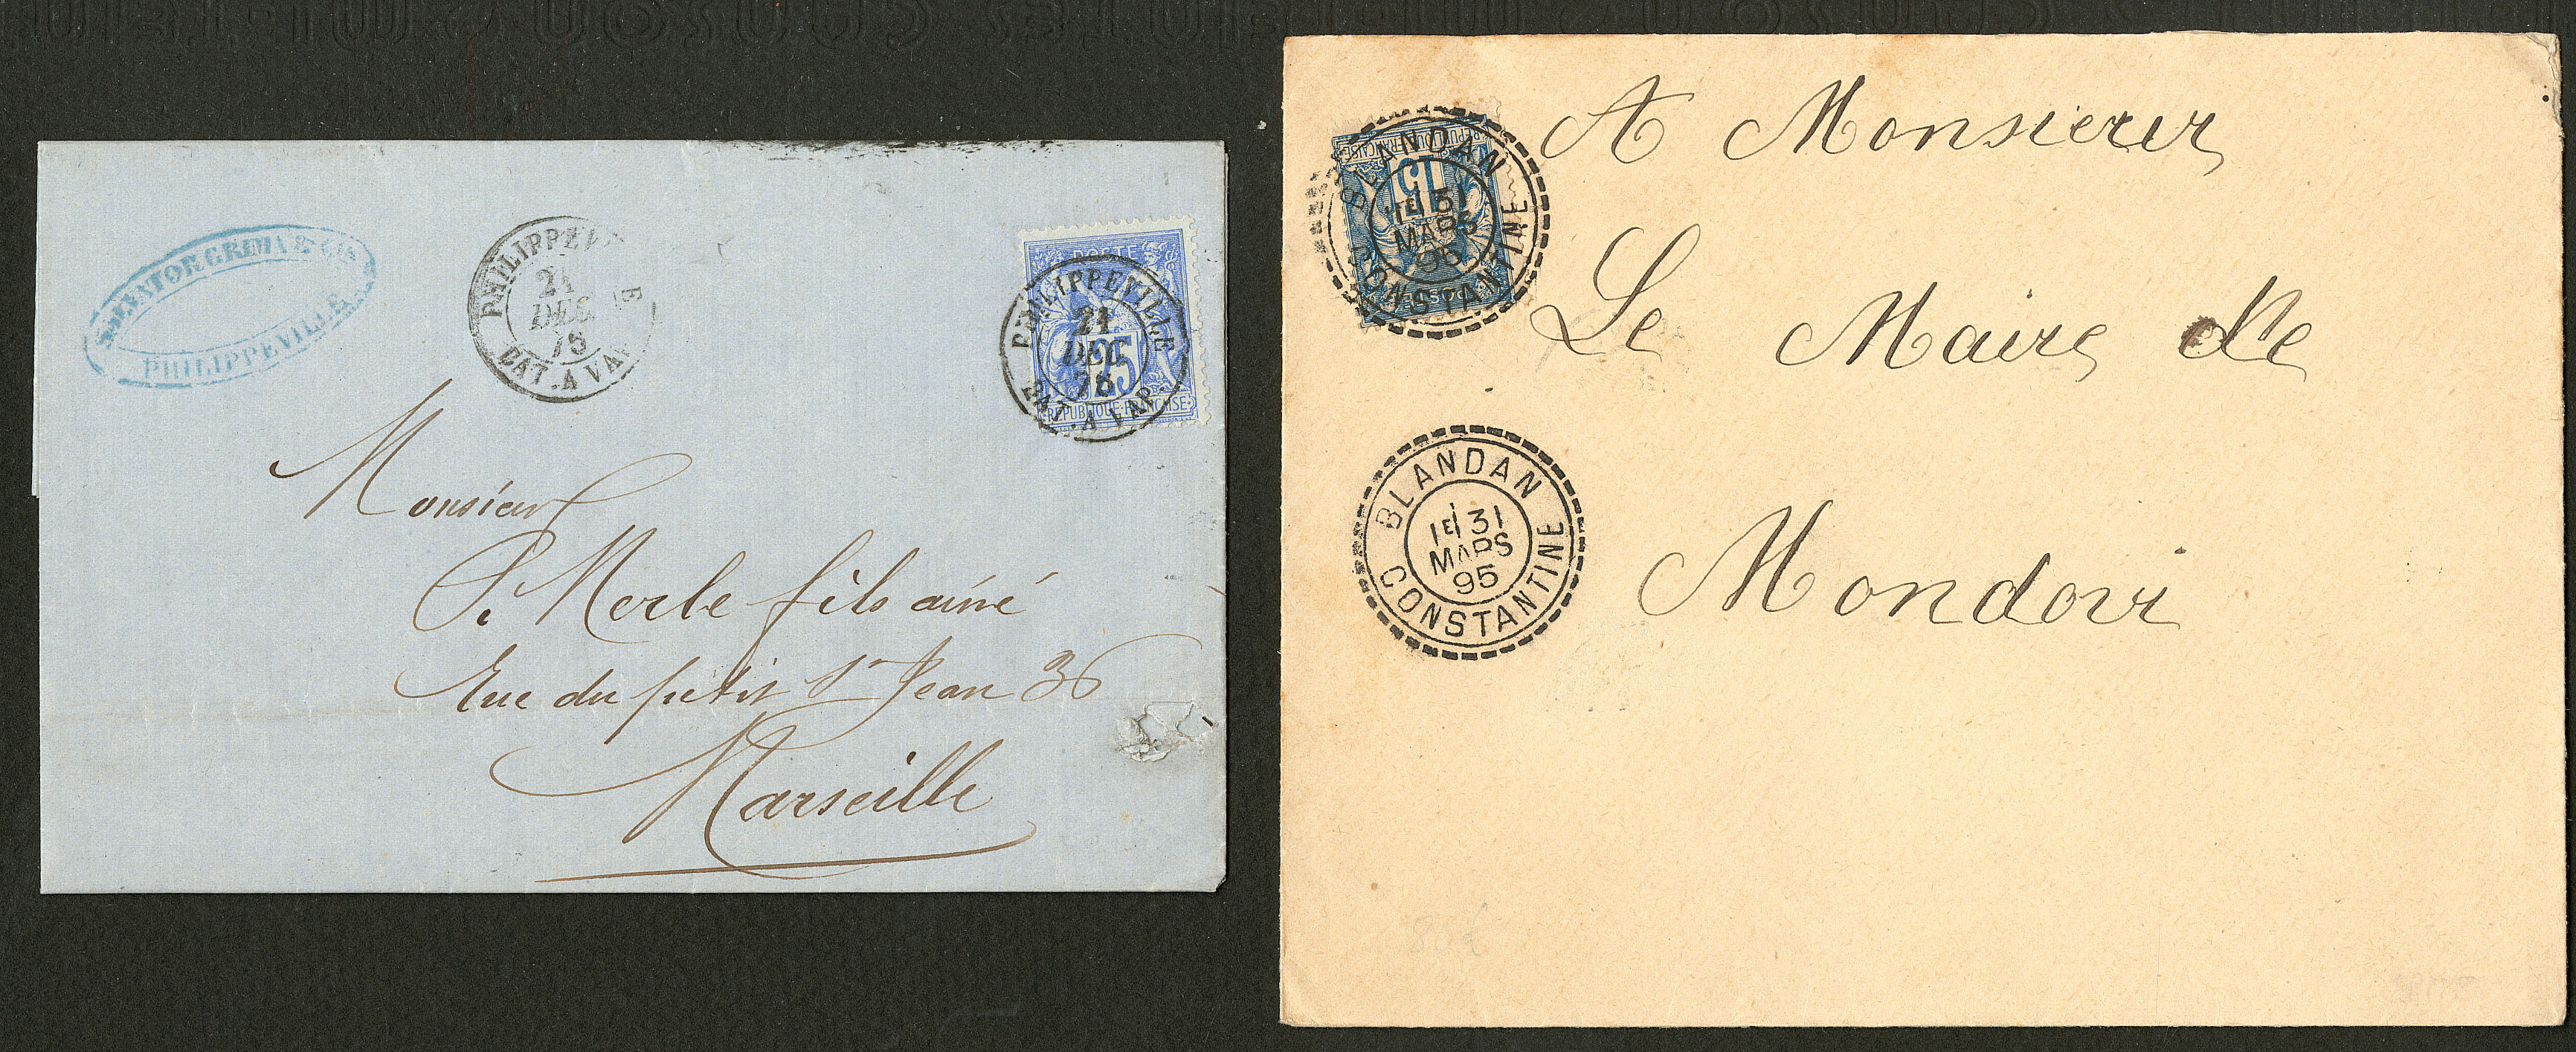 SALVATOR GRIMA & CIE
PHILIPPEVILLE
PHILIPPEV E
21
DEC
78
BAT. A VAP
POSTE
PHILIPPEVILLE
21
DEC
78
25
BAT. A VAP.
REPUBLIQUE FRANÇAISE
Monsieur
P. Merle fils ainé
Rue du petit St Jean 36
Marseille
REPUBLIQUE FRANÇAISE
15
POSTE
BLANDAN
1E 31
MARS
95
CONSTANTINE
A Monsieur
Le Maire de
Mondovi
BLANDAN
1E 31
MARS
95
CONSTANTINE